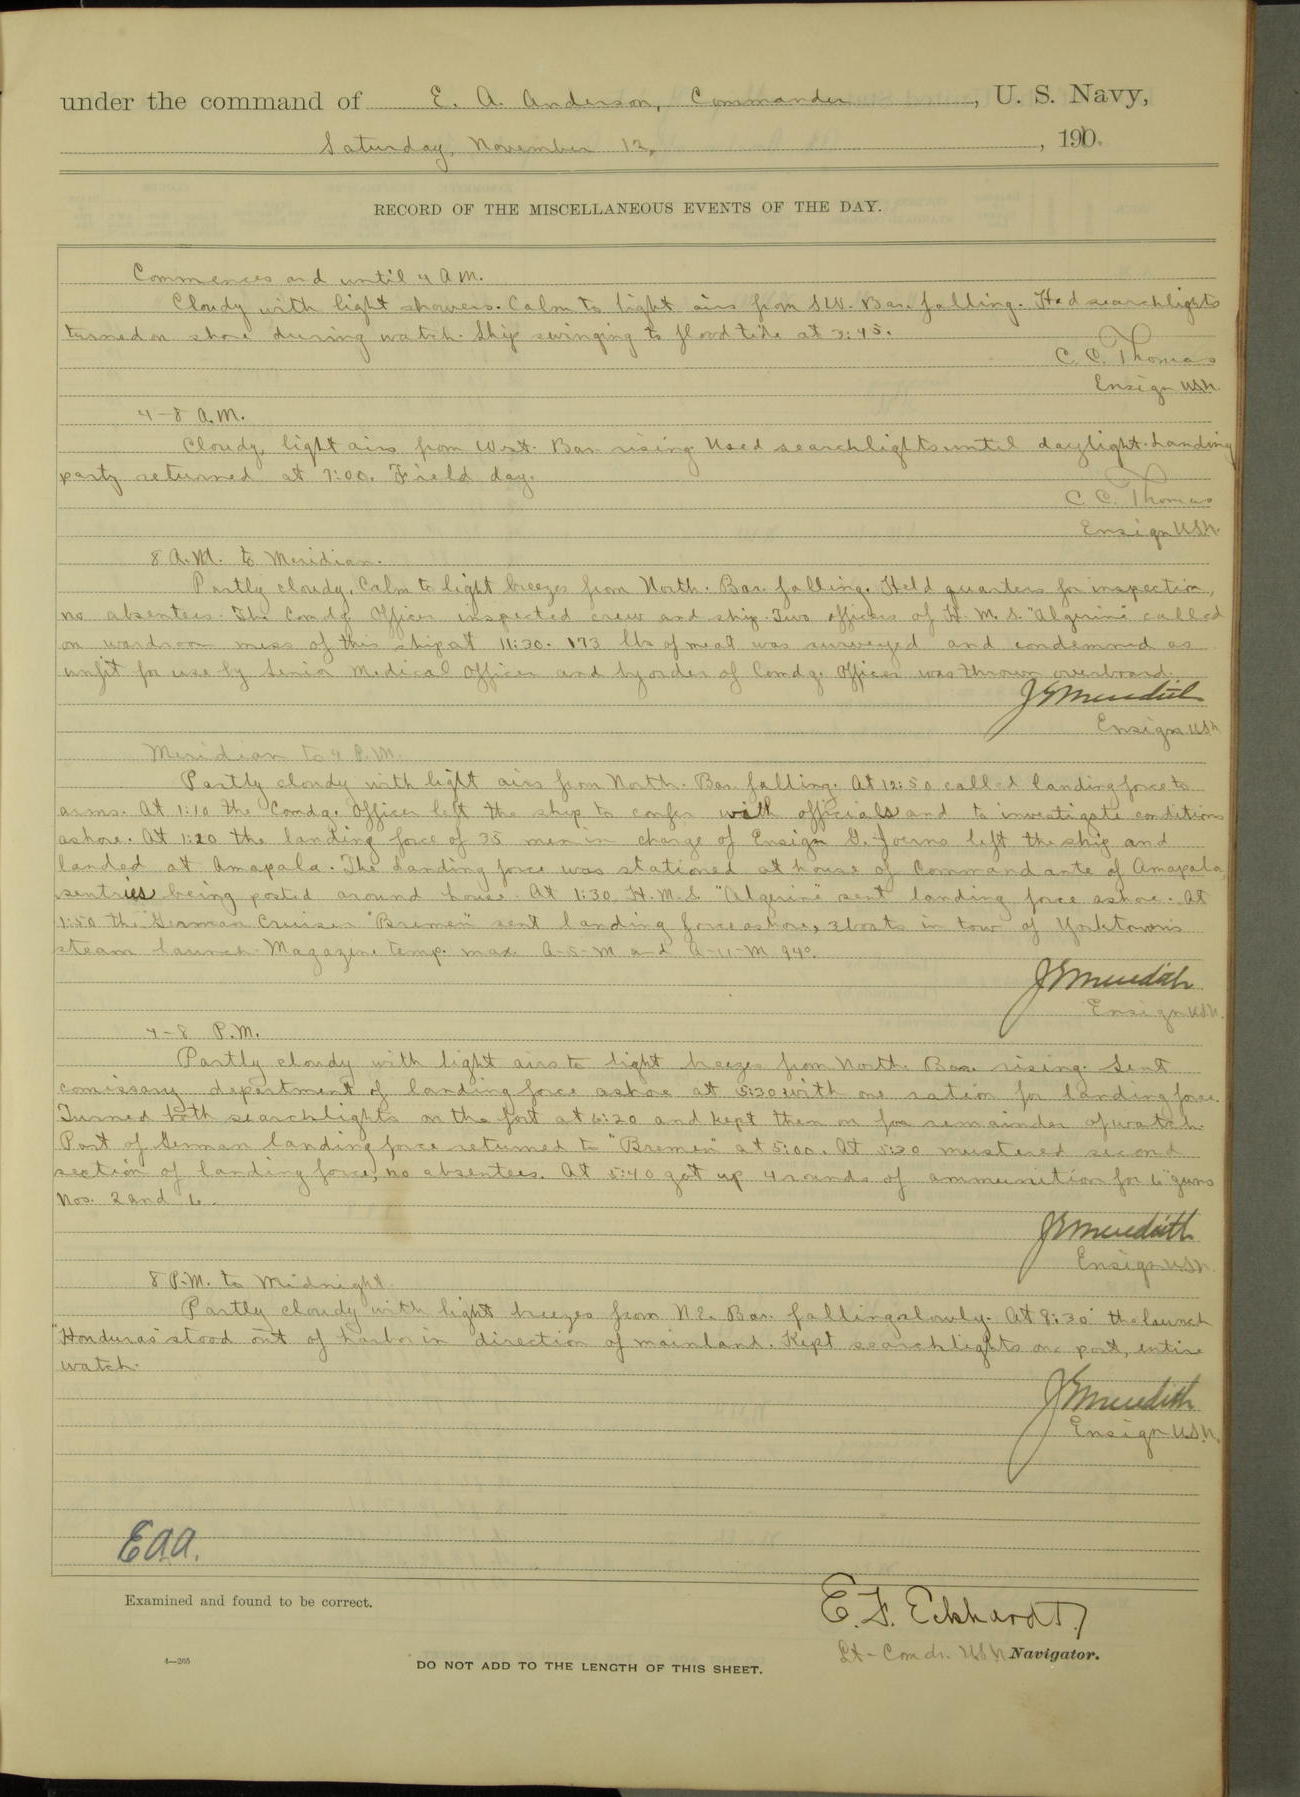 under the command of E. A. Anderson, Commander, U. S. Navy,
Saturday, November 12, 1910.
RECORD OF THE MISCELLANEOUS EVENTS OF THE DAY.
Commences and until 4 A.M.
Cloudy with light showers. Calm to light airs from S.W. Bar. falling. Had searchlights
turned on shore during watch. Ship swinging to flood tide at 3:45.
C. C. Thomas
Ensign USN.
4-8 A.M.
Cloudy, light airs from West. Bar. rising. Used searchlights until daylight. Landing
party returned at 7:00. Field day.
C. C. Thomas
Ensign USN.
8 A.M. to Meridian.
Partly cloudy. Calm to light breezes from North. Bar. falling. Held quarters for inspection,
no absentees. The Comdg. Officer inspected crew and ship. Two officers of H. M. S. "Algerine" called
on wardroom mess of this ship at 11:30. 173 lbs of meat was surveyed and condemned as
unfit for use by Senior Medical Officer and by order of Comdg. Officer was thrown overboard.
J E Meredith
Ensign USN
Meridian to 4 P.M.
Partly cloudy with light airs from North. Bar. falling. At 12:50 called landing force to
arms. At 1:10 the Comdg. Officer left the ship to confer with officials and to investigate conditions
ashore. At 1:20 the landing force of 35 men in charge of Ensign G. Joerns left the ship and
landed at Amapala. The landing force was stationed at house of Commandante of Amapala,
sentries being posted around house. At 1:30 H. M. S. "Algerine" sent landing force ashore. At
1:50 the German Cruiser "Bremen" sent landing force ashore, 3 boats in tow of Yorktown's
steam launch. Magazine temp. max. A-5-M and A-11-M 94°.
J E Meredith
Ensign USN.
4-8 P.M.
Partly cloudy with light airs to light breezes from North. Bar. rising. Sent
comissary department of landing force ashore at 5:30 with one ration for landing force.
Turned both searchlights on the fort at 6:20 and kept then on for remainder of watch.
Part of German landing force returned to "Bremen" at 5:00. At 5:20 mustered second
section of landing force, no absentees. At 5:40 got up 4 rounds of ammunition for 6" guns
Nos. 2 and 6.
J E Meredith
Ensign USN.
8 P.M. to Midnight.
Partly cloudy with light breezes from N.E. Bar. falling slowly. At 8:30 the launch
"Honduras" stood out of harbor in direction of mainland. Kept searchlights on port, entire
watch.
J E Meredith
Ensign U.S.N.
E.A.A.
Examined and found to be correct.
E. F. Eckhardt,
Lt-Comdr. USN Navigator.
4—265
DO NOT ADD TO THE LENGTH OF THIS SHEET.